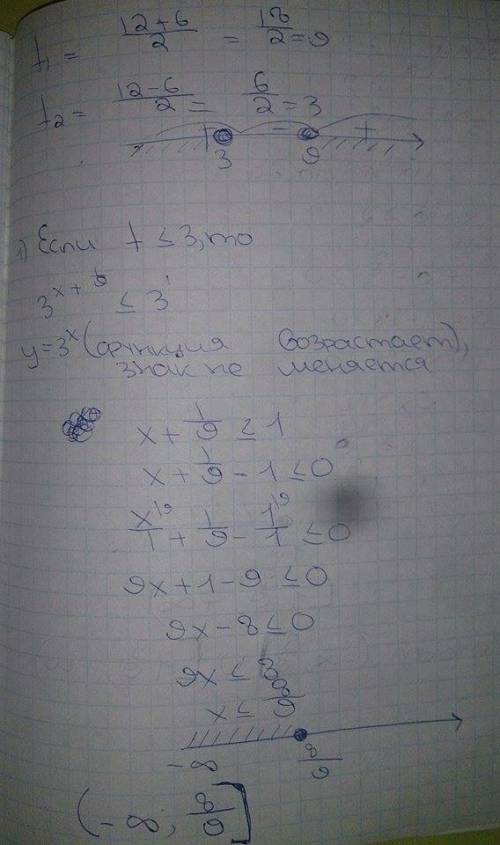 t₁ = (12+6)/2 = 18/2 = 9
t₂ = (12-6)/2 = 6/2 = 3
+ - +
3 9
1) Если t ≤ 3, то
3^(x + 1/9) ≤ 3¹
y=3ˣ (функция возрастает),
знак не меняется
x + 1/9 ≤ 1
x + 1/9 - 1 ≤ 0
x/1 |9 + 1/9 - 1/1 |9 ≤ 0
9x + 1 - 9 ≤ 0
9x - 8 ≤ 0
9x ≤ 8
x ≤ 8/9
-∞ 8/9
(-∞; 8/9]